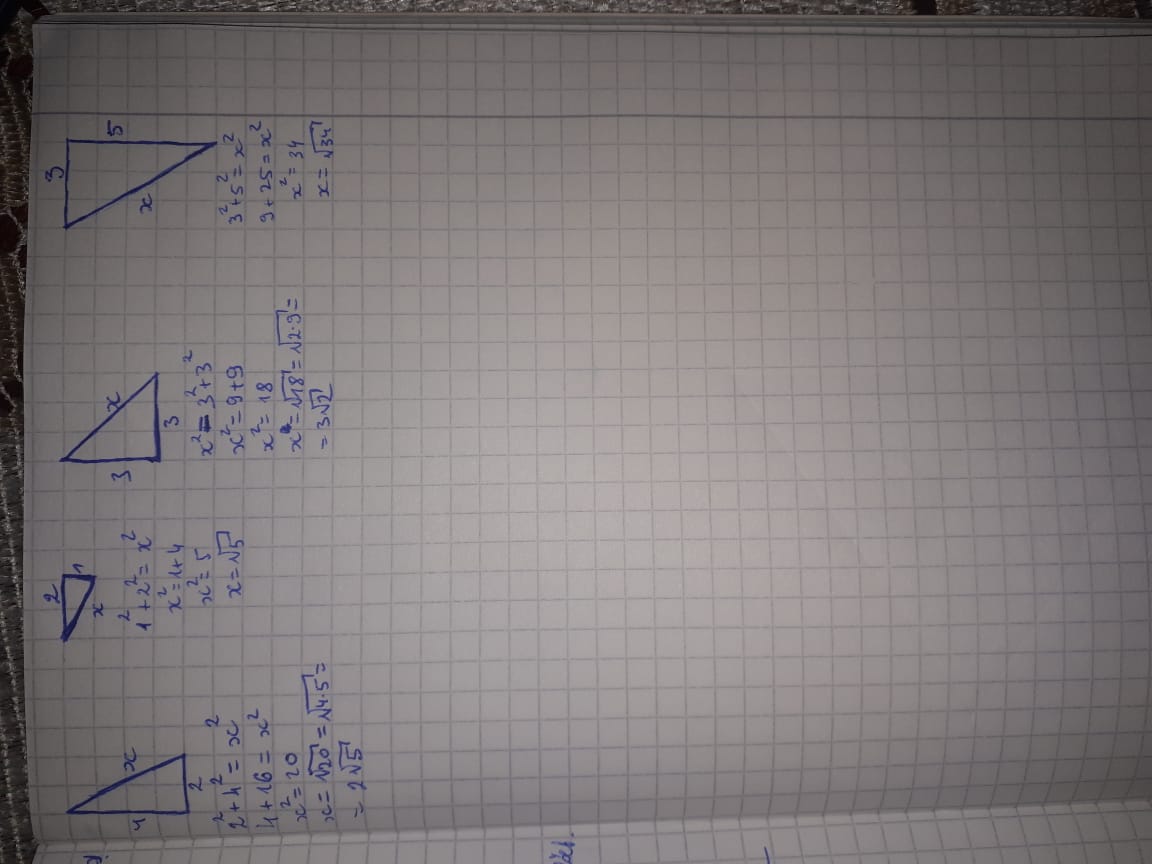 4
x
2
2² + 4² = x²
4 + 16 = x²
x² = 20
x = √20 = √4·5 =
= 2√5
2
1
x
1² + 2² = x²
x² = 1 + 4
x² = 5
x = √5
3
x
3
x² = 3² + 3²
x² = 9 + 9
x² = 18
x = √18 = √2·9 =
= 3√2
3
5
x
3² + 5² = x²
9 + 25 = x²
x² = 34
x = √34